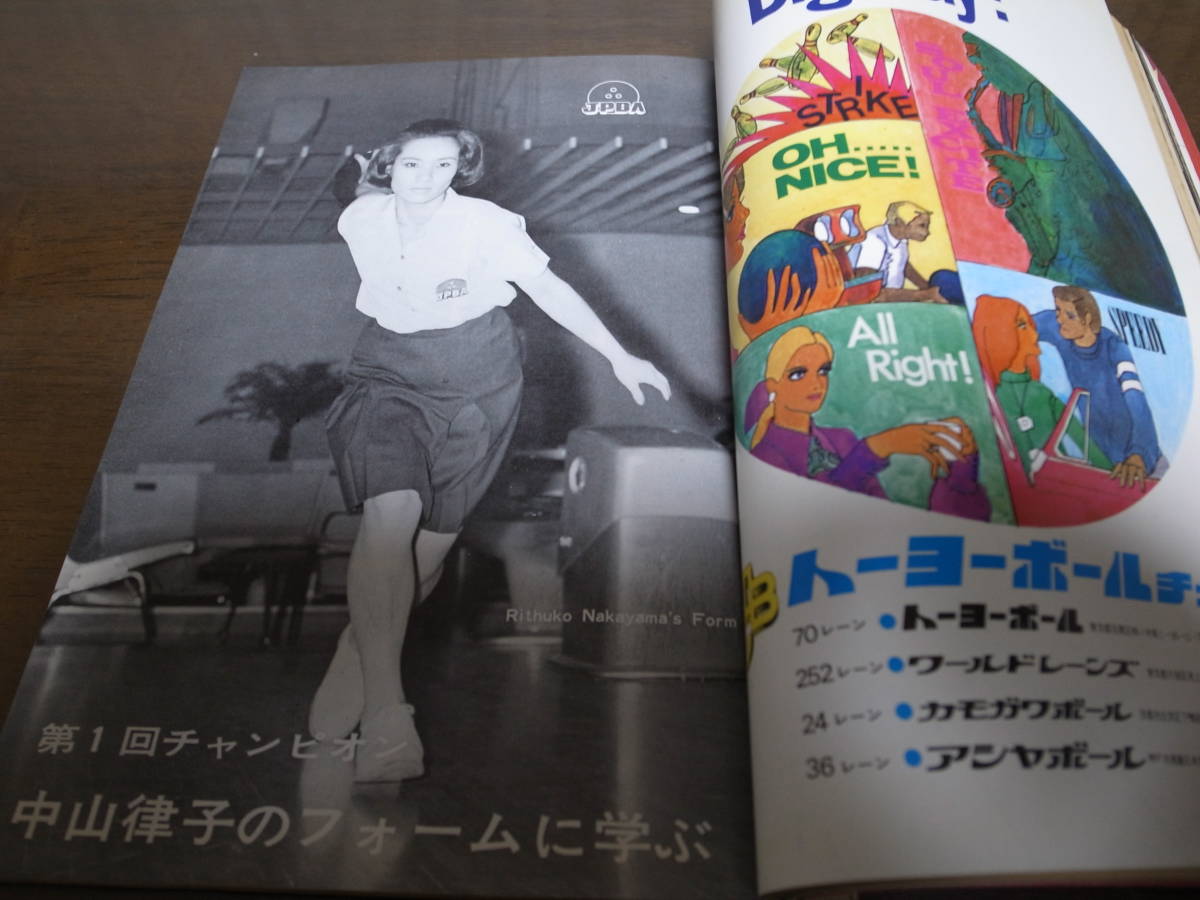 JPBA
JPBA
Rithuko Nakayama's Form
第1回チャンピオン
中山律子のフォームに学ぶ
I
STRIKE
OH.....
NICE!
All
Right!
トーヨーボール
70レーン ●トーヨーボール
252レーン ●ワールドレーンズ
24レーン ●カモガワボール
36レーン ●アシヤボール